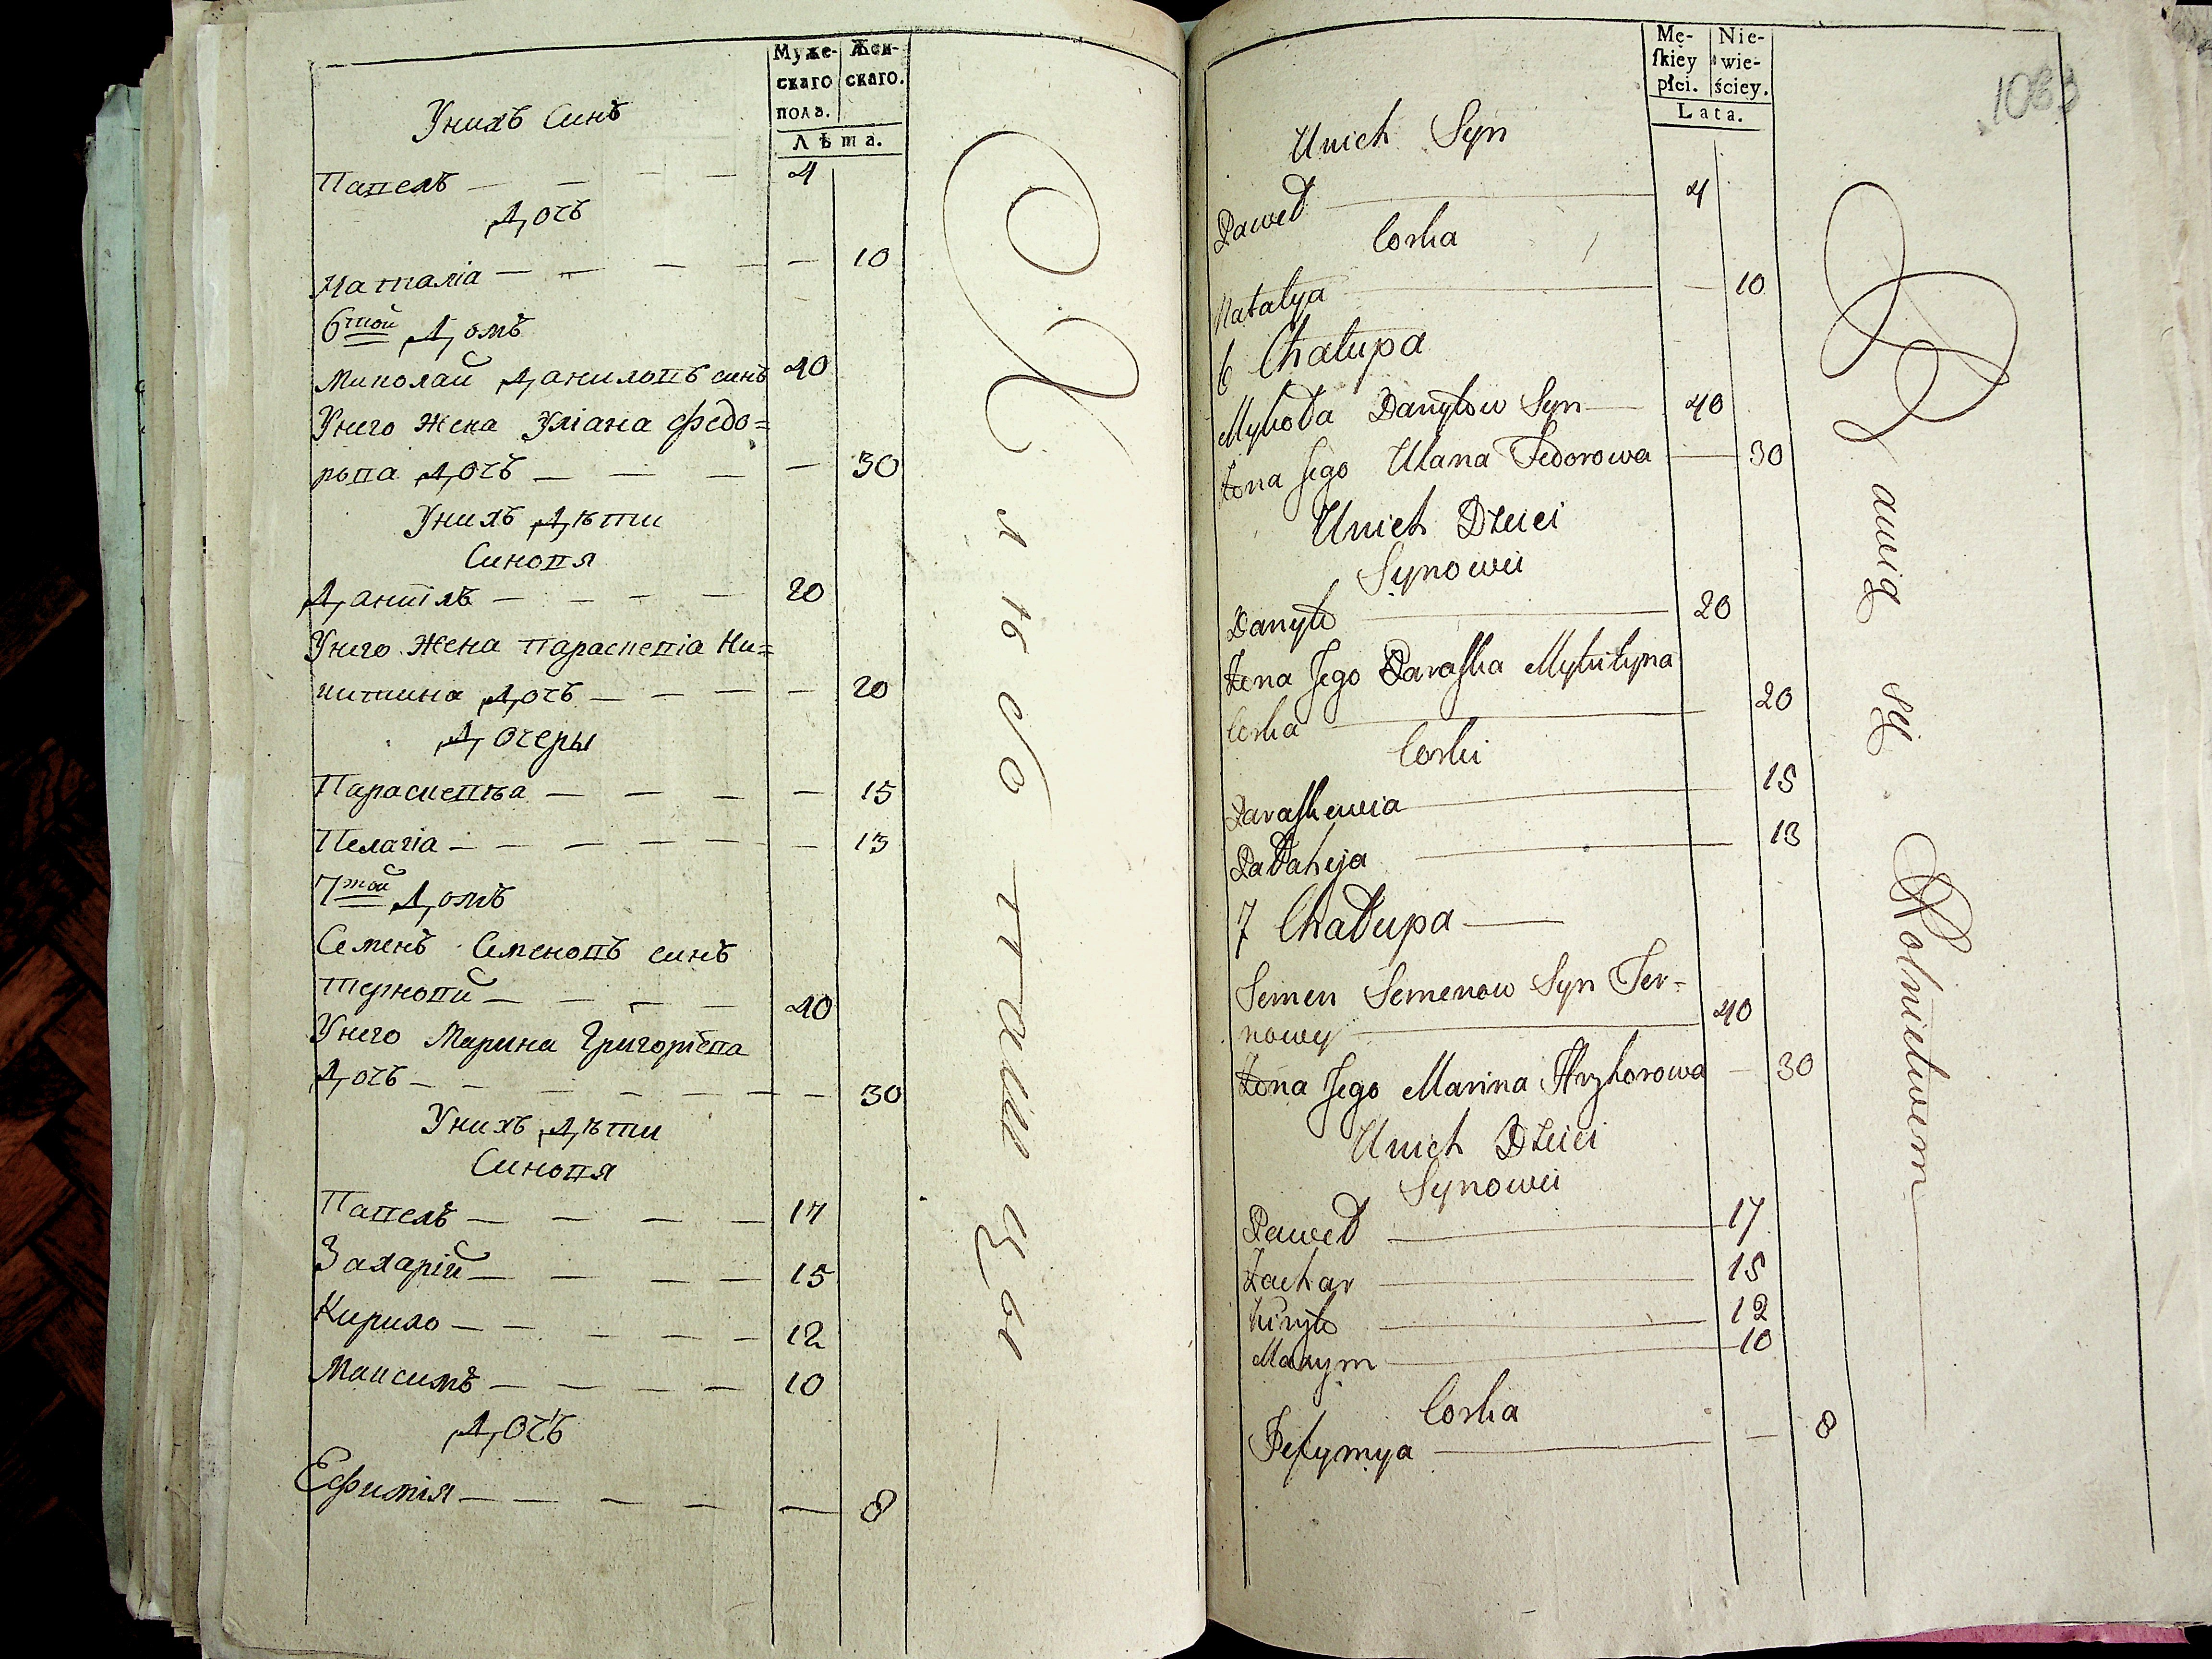 Муже-
скаго
пола.
Жен-
скаго.
Лѣта.
Унихъ Синъ
Павелъ — — — — 4
Дочь
Наталіа — — — — — 10
6той Домъ
Миколай Даниловъ синъ 40
Унего Жена Уліана Федо=
рова Дочь — — — — 30
Унихъ Дѣти
Синовя
Даніилъ — — — — 20
Унего Жена Параскевіа Ни=
китина Дочь — — — — 20
Дочеры
Параскевѣа — — — — 15
Пелагіа — — — — — — 13
7той Домъ
Семенъ Семеновъ синъ
Терновій — — — — 40
Унего Марина Григоріева
Дочь — — — — — — 30
Унихъ Дѣти
Синовя
Павелъ — — — — 17
Захарій — — — — 15
Кирило — — — — — 12
Максимъ — — — — 10
Дочь
Ефимія — — — — — 8
Хлѣбопашцы —
Mę-
ſkiey
płci.
Nie-
wie-
ściey.
Lata.
1083
Unich Syn
Paweł — 4
Corka
Natalya — — 10
6 Chałupa
Mykoła Danyłow Syn — 40
Żona Jego Ulana Fedorowa — 30
Unich Dzieci
Synowie
Danyło — 20
Żona Jego Paraſka Mykityna
Corka — 20
Corki
Paraſkewia — 15
Pałaheja — 13
7 Chałupa —
Semen Semenow Syn Ter-
nowy — 40
Żona Jego Marina Hryhorowa — 30
Unich Dzieci
Synowie
Paweł — 17
Zachar — 15
Kiryło — 12
Maxym — 10
Corka
Jefymya — — 8
Bawią się Rolnictwem —